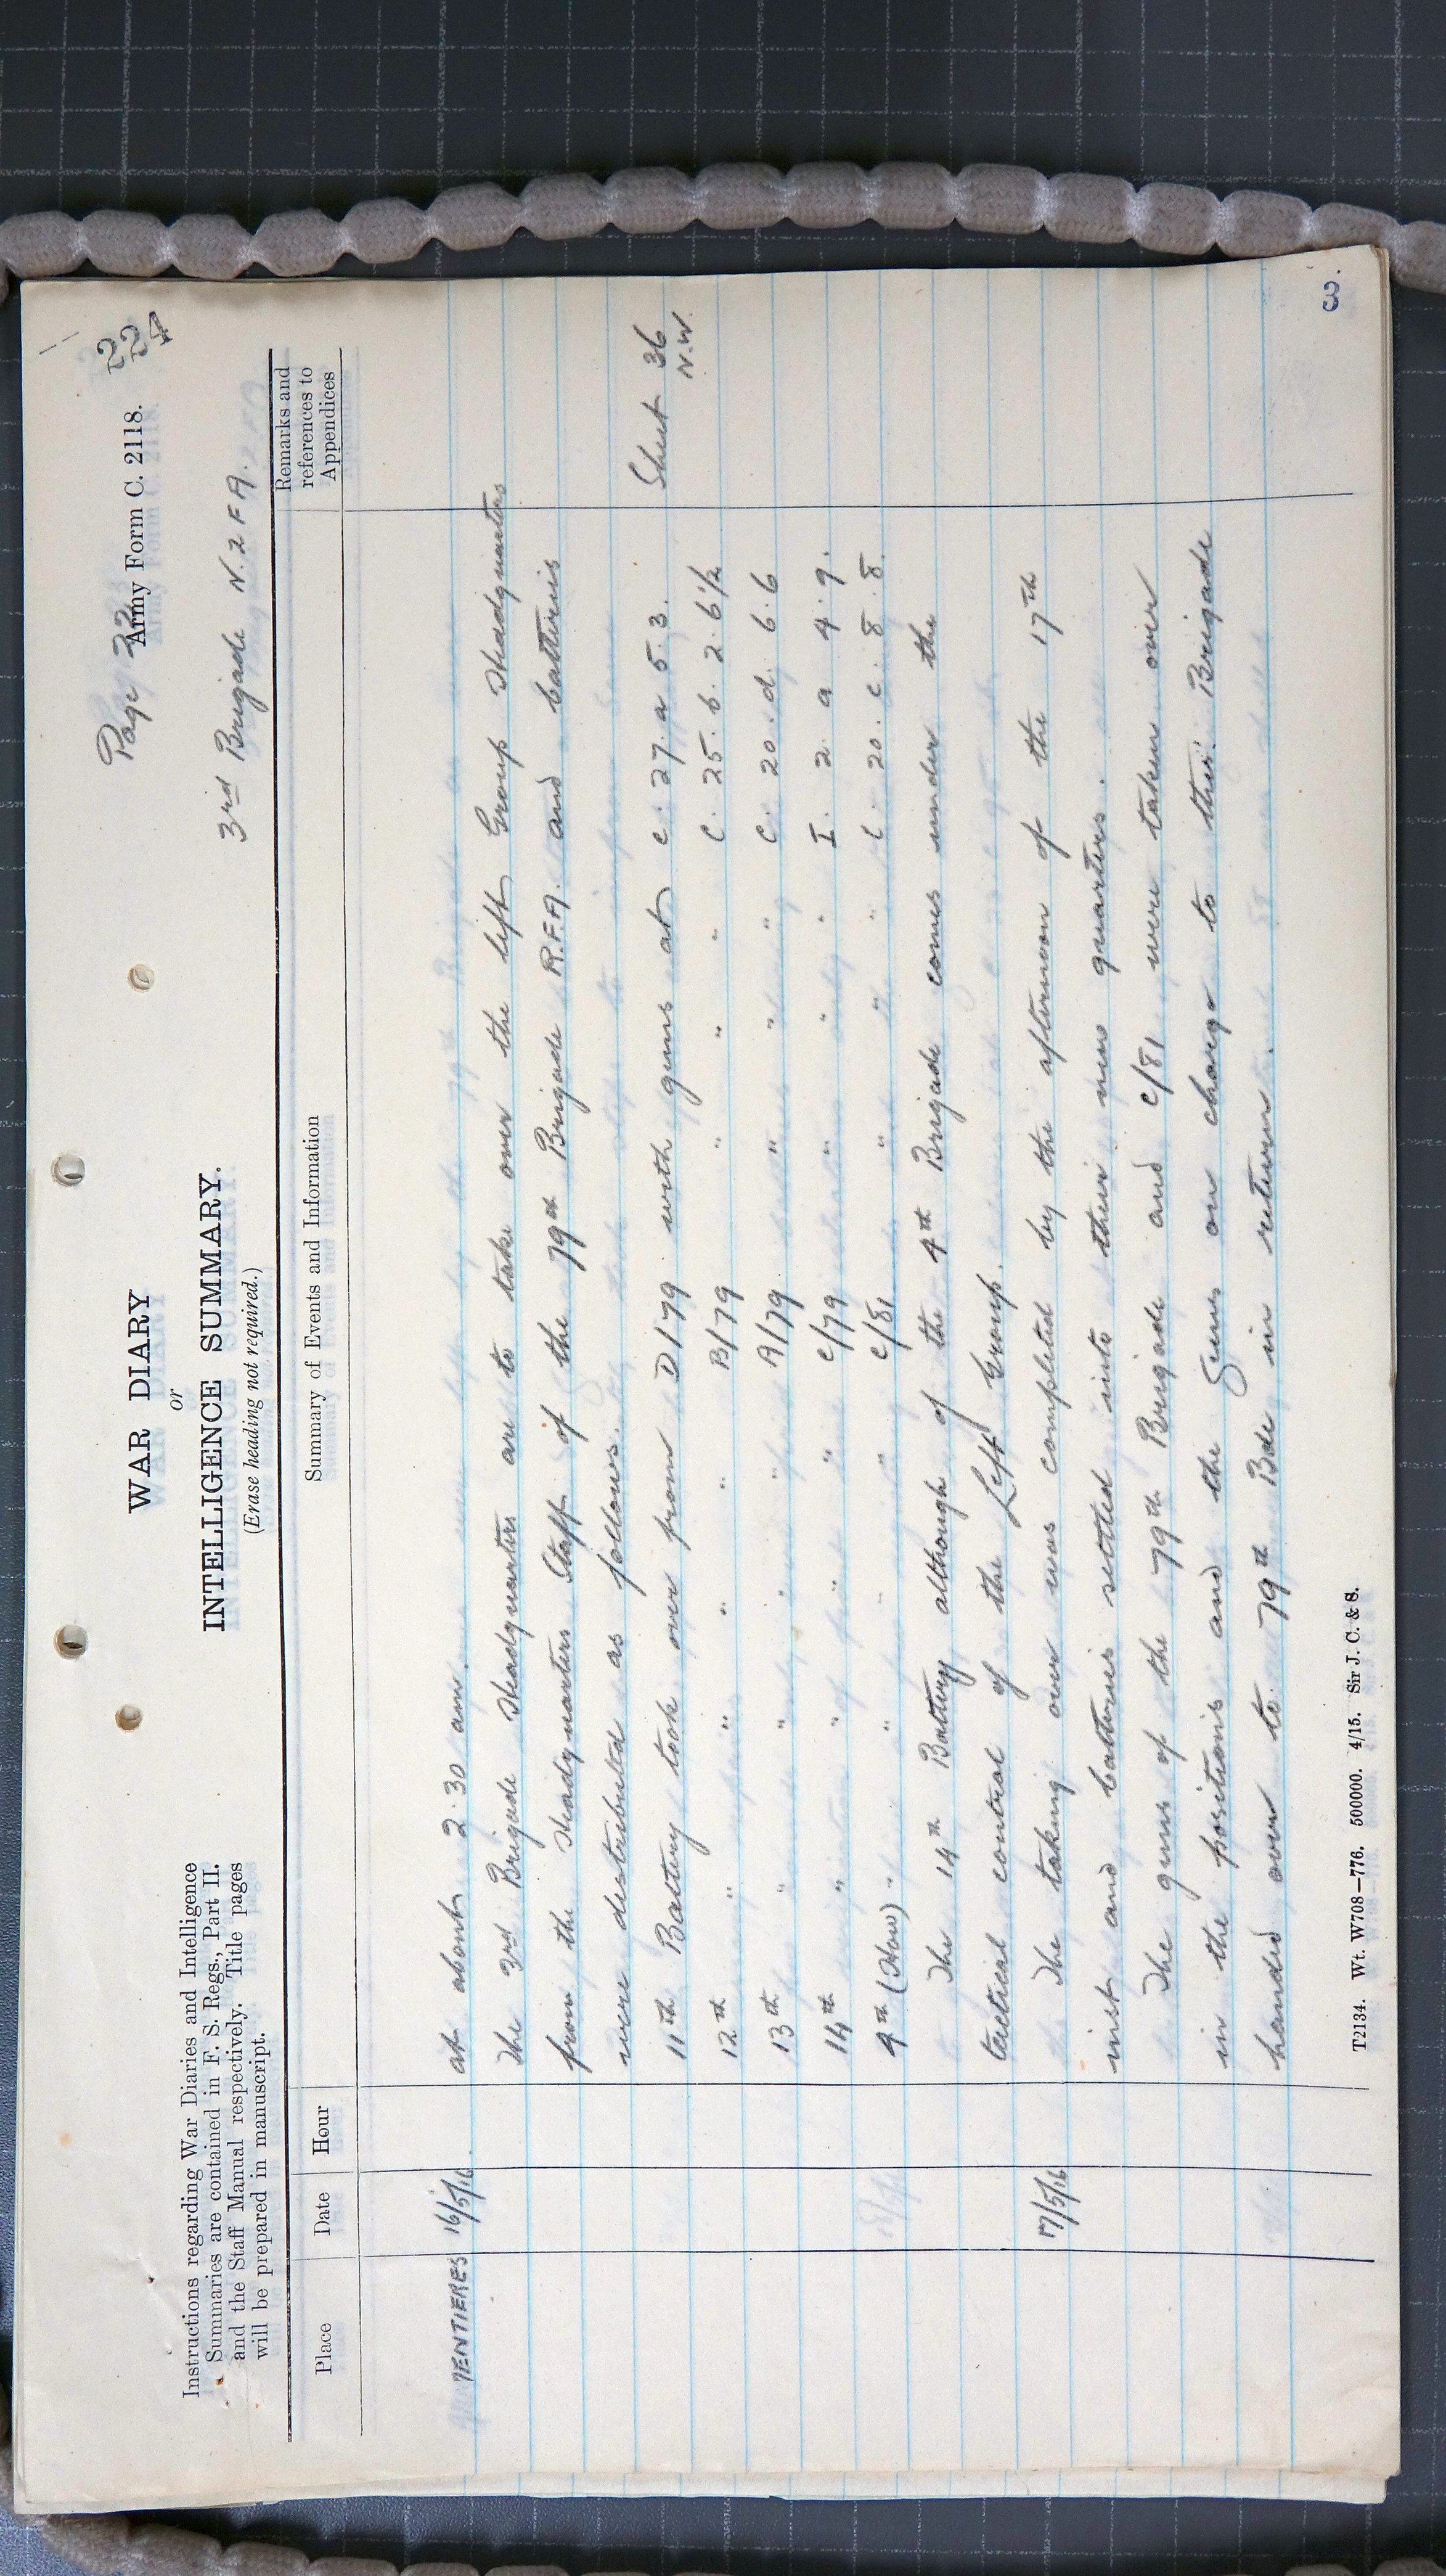 Page 22
Army Form C. 2118.
224
WAR DIARY
or
INTELLIGENCE SUMMARY.
(Erase heading not required.)
3rd Brigade N.Z.F.A.
Instructions regarding War Diaries and Intelligence
Summaries are contained in F. S. Regs., Part II.
and the Staff Manual respectively. Title pages
will be prepared in manuscript.
Place Date Hour Summary of Events and Information Remarks and references to Appendices
MENTIERES 16/5/16 at about 2.30 am.
The 3rd Brigade Headquarters are to take over the left Group Headquarters
from the Headquarters Staff of the 79th Brigade R.F.A. and batteries
were distributed as follows.
11th Battery took over from D/79 with guns at C. 27. a 5.3. Sheet 36 N.W.
12th " " " " B/79 " " " C. 25. b. 2. 6½
13th " " " " A/79 " " " C. 20. d. 6.6
14th " " " " C/79 " " " I. 2. a 4.9.
4th (How) " " " " C/81 " " " C. 20. c. 8.8.
The 14th Battery although of the 4th Brigade comes under the
tactical control of the Left Group.
17/5/16 The taking over was completed by the afternoon of the 17th
inst and batteries settled into their new quarters.
The guns of the 79th Brigade and C/81 were taken over
in the positions and the Guns on charge to this Brigade
handed over to 79th Bde in return.
T2134. Wt. W708—776. 500000. 4/15. Sir J. C. & S.
3.